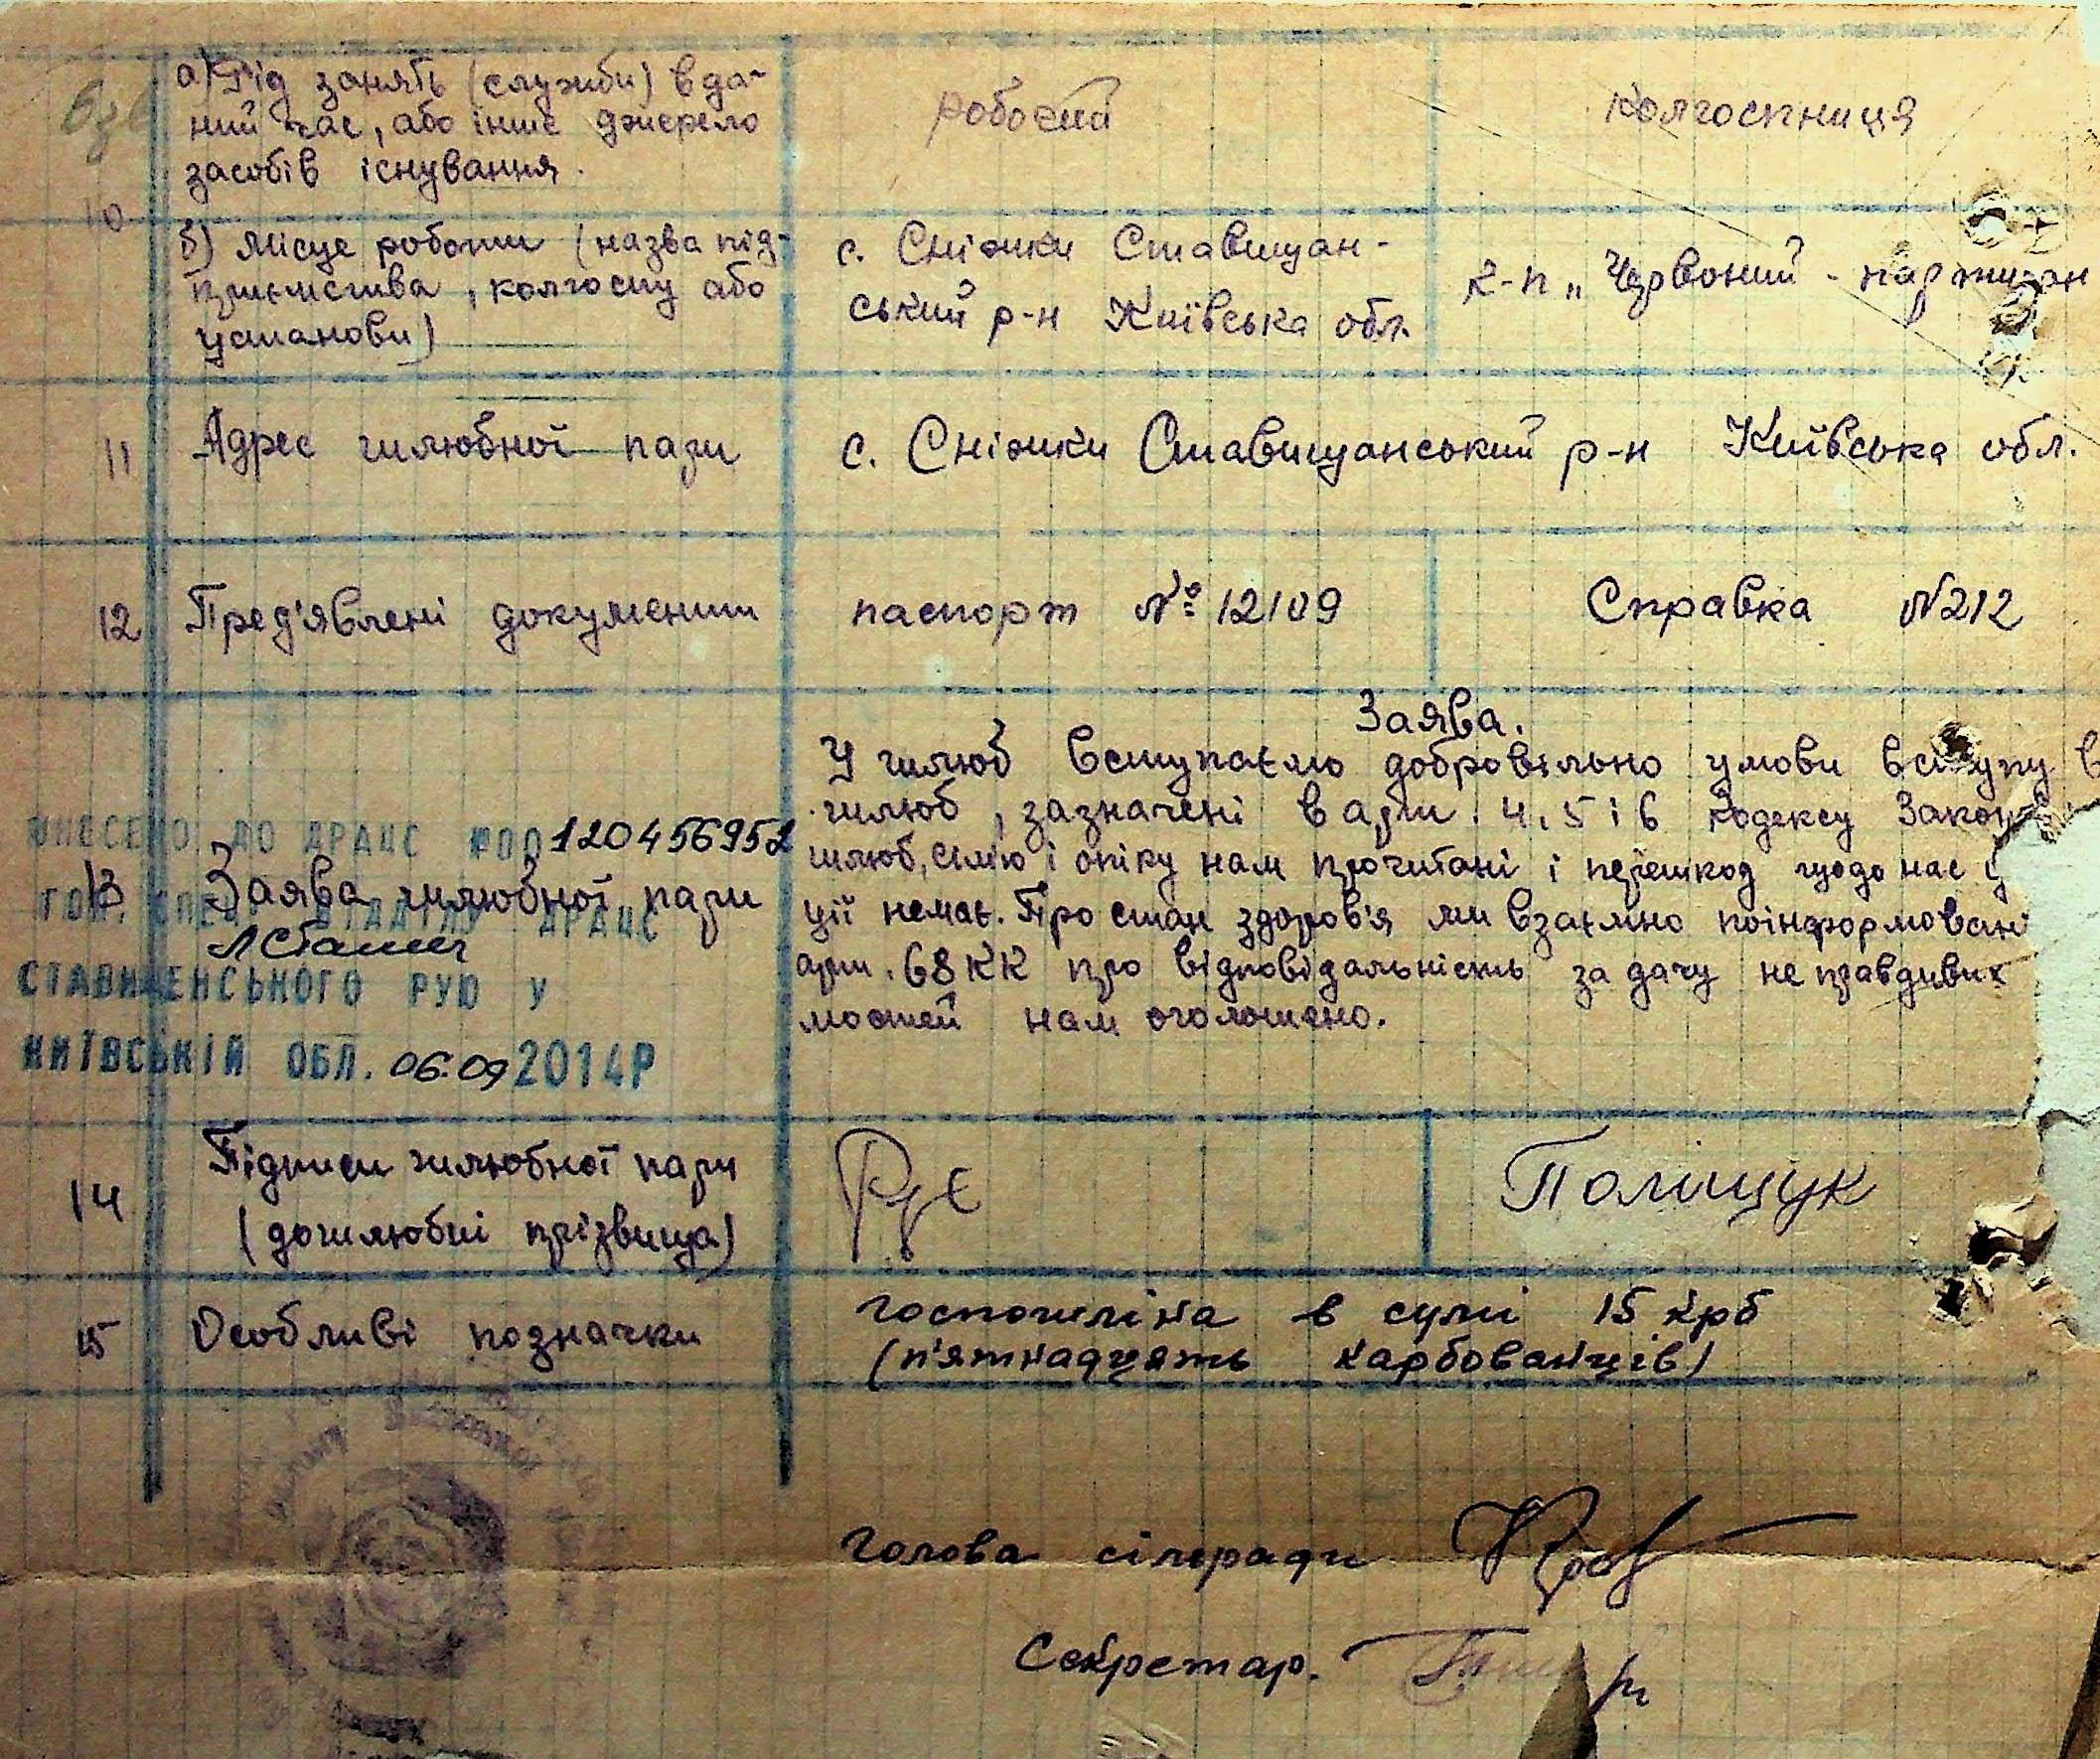 а) Рід занять (служби) в да-
ний час, або інше джерело
засобів існування.
робочий
колгоспниця
10
б) Місце роботи (назва під-
приємства, колгоспу або
установи)
с. Сніжки Ставищан-
ський р-н Київська обл.
к-п „Червоний - партизан
11 Адрес шлюбної пари
с. Сніжки Ставищанський р-н Київська обл.
12 Пред'явлені документи
паспорт № 12109
Справка N212
13 Заява шлюбної пари
Заява.
У шлюб вступаємо добровільно умови вступу в
шлюб, зазначені в арт. 4, 5 і 6 Кодексу Законів
шлюб, сім'ю і опіку нам прочитані і перешкод щодо нас
ції немає. Про стан здоров'я ми взаємно поінформовані
арт. 68 КК про відповідальність за дачу неправдивих
мостей нам оголошено.
ВНЕСЕНО ДО ДРАЦС 00120456952
ГОЛ. СПЕЦ. ВІДДІЛУ ДРАЦС
СТАВИЩЕНСЬКОГО РУЮ У
КИЇВСЬКІЙ ОБЛ. 06.09 2014Р
14 Підписи шлюбної пари
(дошлюбні прізвища)
Поліщук
15 Особливі позначки
госпошліна в сумі 15 крб
(п'ятнадцять карбованців)
Голова сільради
Секретар.